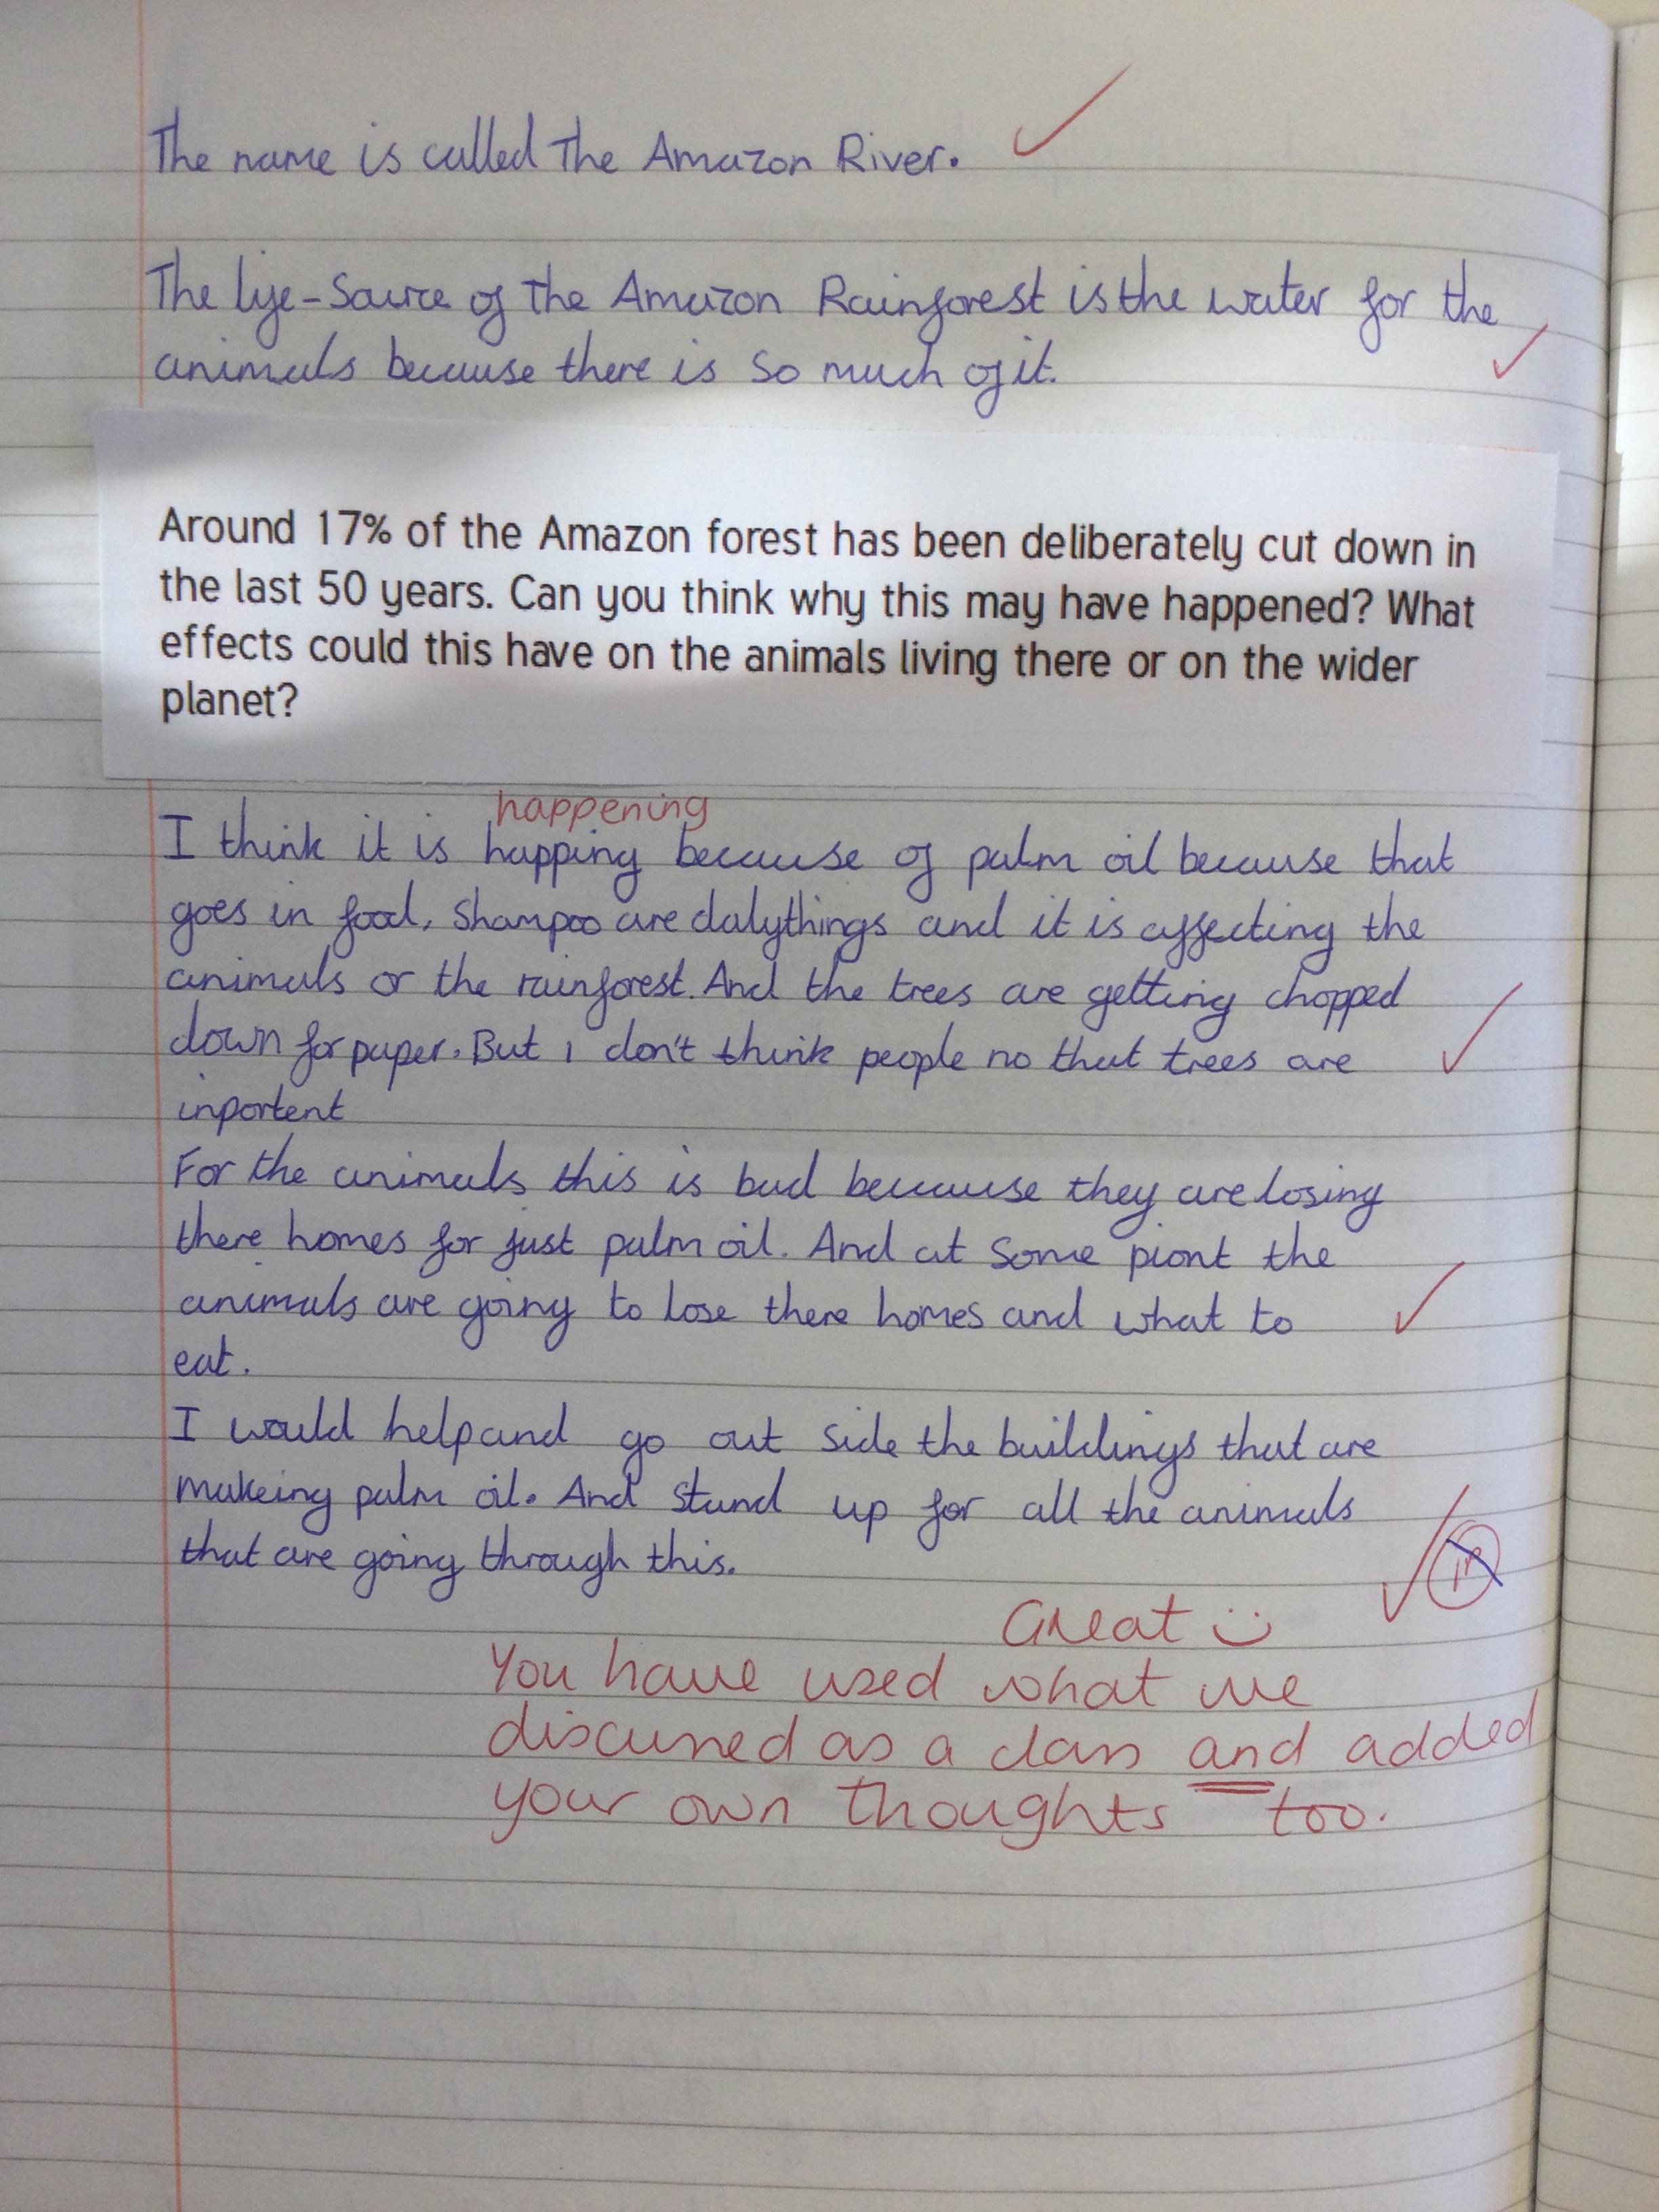 The name is called The Amazon River.
The life-Source of The Amazon Rainforest is the water for the
animals because there is So much of it.
Around 17% of the Amazon forest has been deliberately cut down in
the last 50 years. Can you think why this may have happened? What
effects could this have on the animals living there or on the wider
planet?
happening
I think it is happing because of palm oil because that
goes in food, Shampoo are dalythings and it is affecting the
animals or the rainforest. And the trees are getting chopped
down for paper. But i don't think people no that trees are
inportent
For the animals this is bad because they are losing
there homes for just palm oil. And at Some piont the
animals are going to lose there homes and what to
eat.
I would help and go out side the buildings that are
makeing palm oil. And stand up for all the animals
that are going through this.
Great
You have used what we
discussed as a class and added
your own thoughts too.